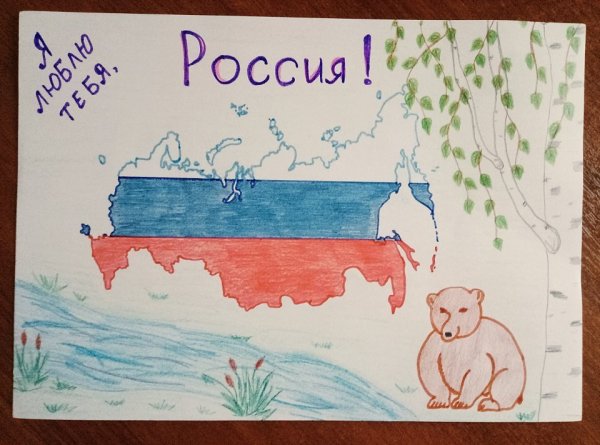 Я
ЛЮБЛЮ
ТЕБЯ,
Россия!